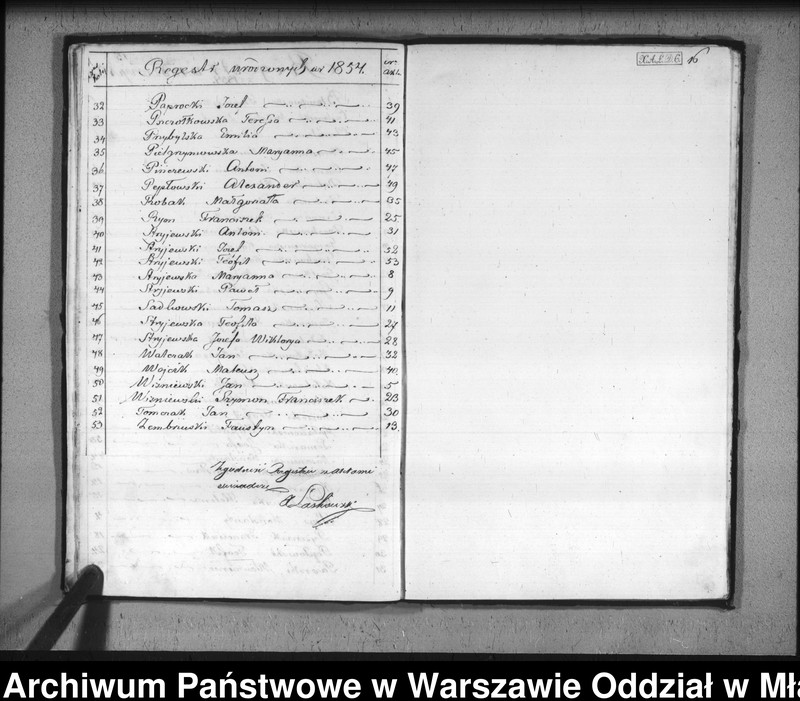 Regestr urodzonych w 1854.
32 Paprocki Józef 39
33 Pszczołkowska Teressa 41
34 Przybylska Emilia 43
35 Pielgrzymowska Maryanna 45
36 Piszczewski Antoni 47
37 Pepłowski Alexander 49
38 Robak Małgorzatta 35
39 Ryon Franciszek 25
40 Stryjewski Antoni 31
41 Stryjewski Józef 52
42 Stryjewski Teofil 53
43 Stryjewska Maryanna 8
44 Stryjewski Paweł 9
45 Sadłowski Tomasz 11
46 Stryjewska Teofila 27
47 Stryjewska Józefa Wiktorya 28
48 Walczak Jan 32
49 Wojcik Mateusz 40
50 Wiśniewski Jan 5
51 Wiśniewski Szymon Franciszek 23
52 Tomczak Jan 30
53 Zembrzuski Faustyn 13
Zgodność Regestru z Aktami
XALDC 16
Archiwum Państwowe w Warszawie Oddział w Mła